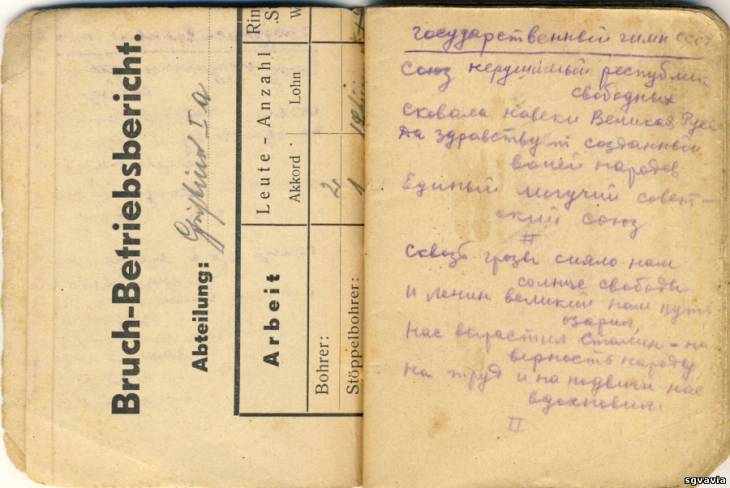 Bruch-Betriebsbericht.
Abteilung:
Arbeit
Leute-Anzahl
Akkord
Lohn
Bohrer:
2
Stöppelbohrer:
1
Государственный гимн СССР
Союз нерушимый республик
свободных
Сковала навеки Великая Русь
Да здравствует созданный
волей народов
Единый могучий совет-
ский союз
II
Сквозь грозы сияло нам
солнце свободы
И Ленин великий нам путь
озарил,
Нас вырастил Сталин - на
верность народу
На труд и на подвиги нас
вдохновил.
II
sgvavia